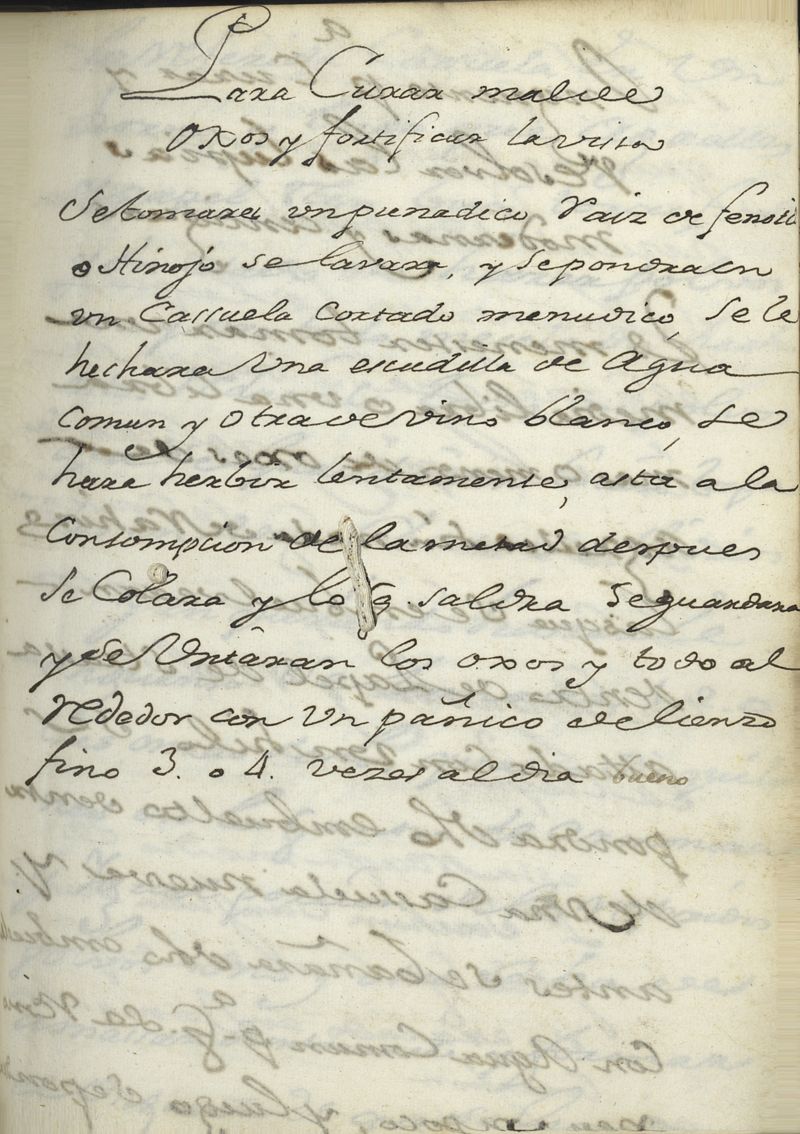 Para Curar mal de
oxos y fortificar la vista
Setomara un punadico Raiz de fenoll
o Hinojo se lavara, y Sepondra en
un Cassuela Cortado menudico, Se le
hechara Una escudilla de Agua
Comun y otra de vino blanco, se
hara herbir lentamente, asta a la
Consompcion de la metad despues
se Colara y lo q saldra Seguardara
y se Untàran los oxos y todo al
rededor con Un pañico de lienzo
fino 3. o 4. vezes al dia bueno